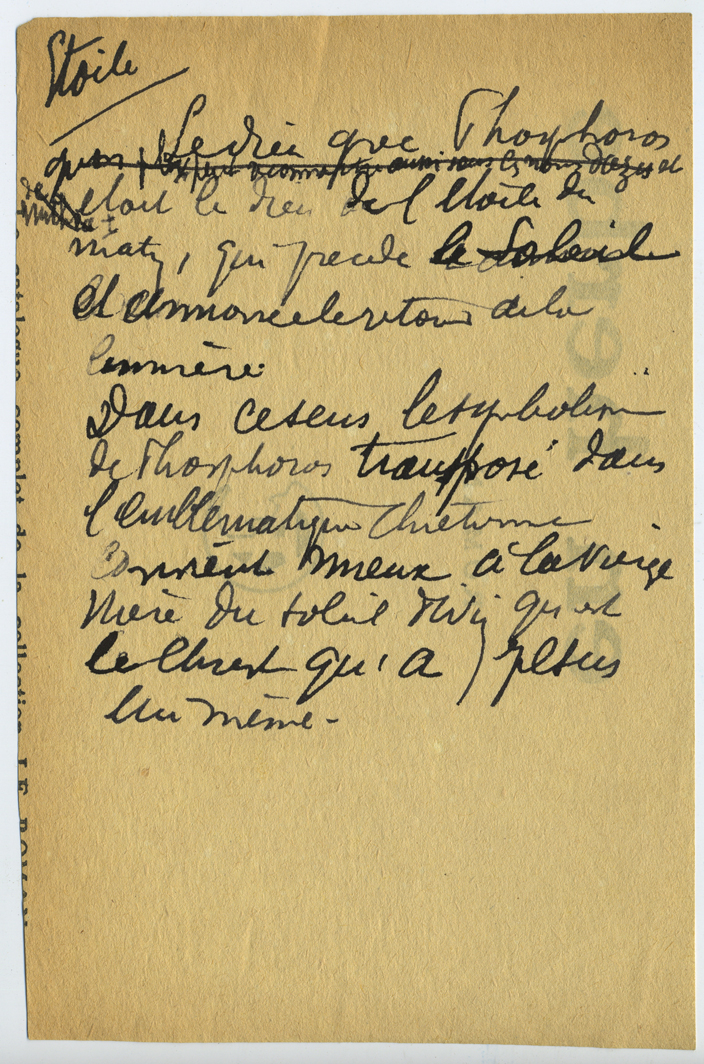 Etoile
Le dieu grec Phosphoros
que l'expert reconnaître aussi sous les noms d'Azizos et
de
était le dieu de l'étoile du
matin, qui précède le Soleil
et annonce le retour de la
lumière.
Dans ce sens le symbolisme
de Phosphoros transposé dans
l'emblématique chrétienne
convient mieux à la Vierge
Mère du soleil divin qu'est
le Christ qu'à Jésus
lui même.
catalogue complet de la collection LE ROMAN